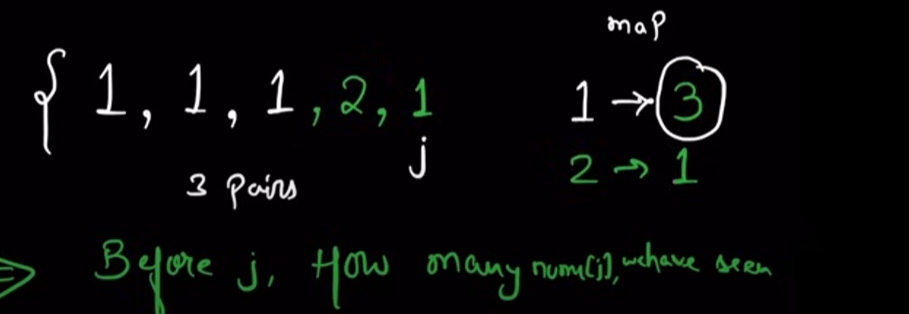 map
{ 1, 1, 1, 2, 1
1 → 3
j
2 → 1
3 pairs
⇒ Before j, How many nums[j], we have seen